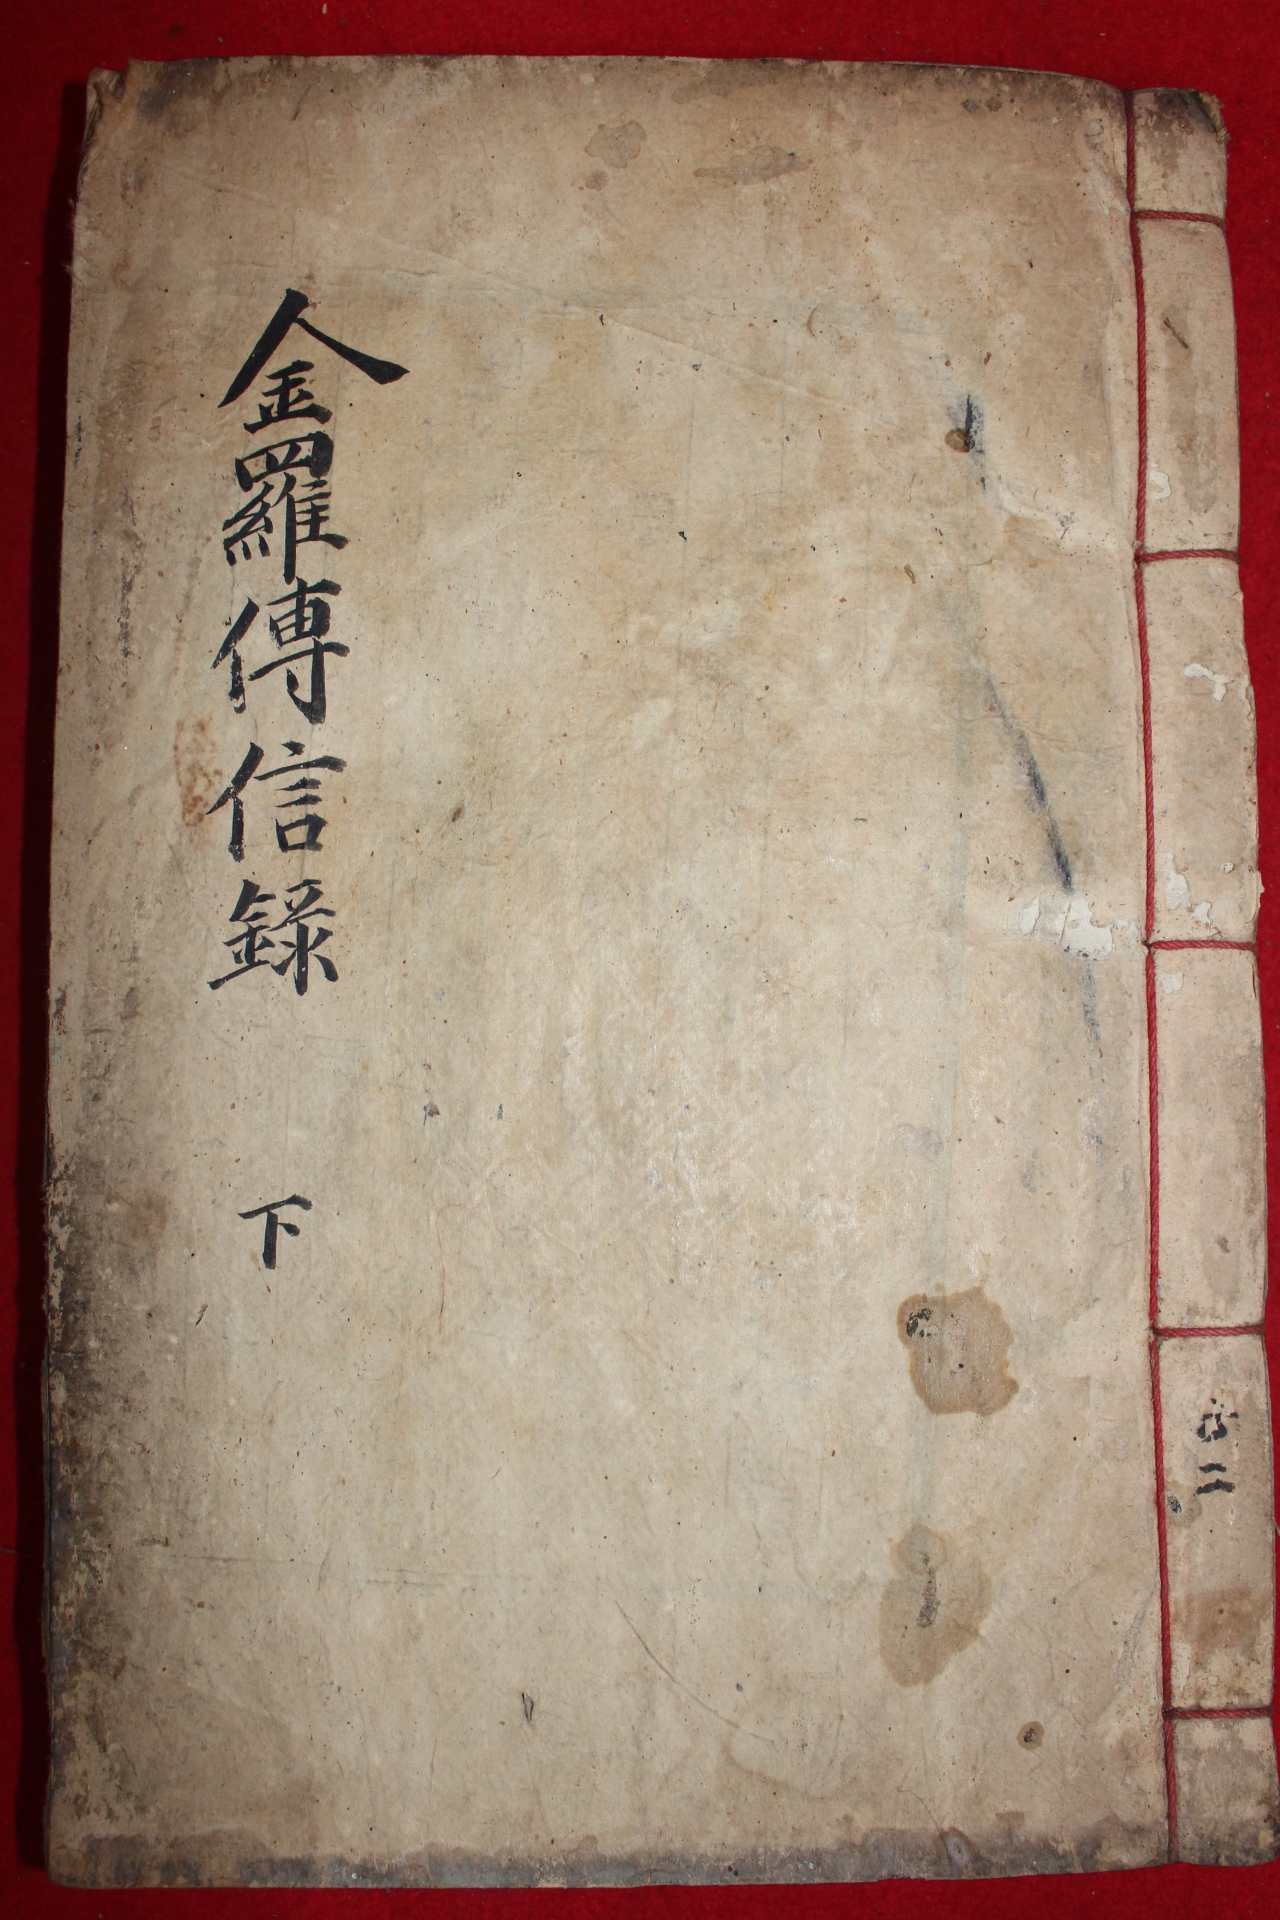 金羅傳信錄 下
共二